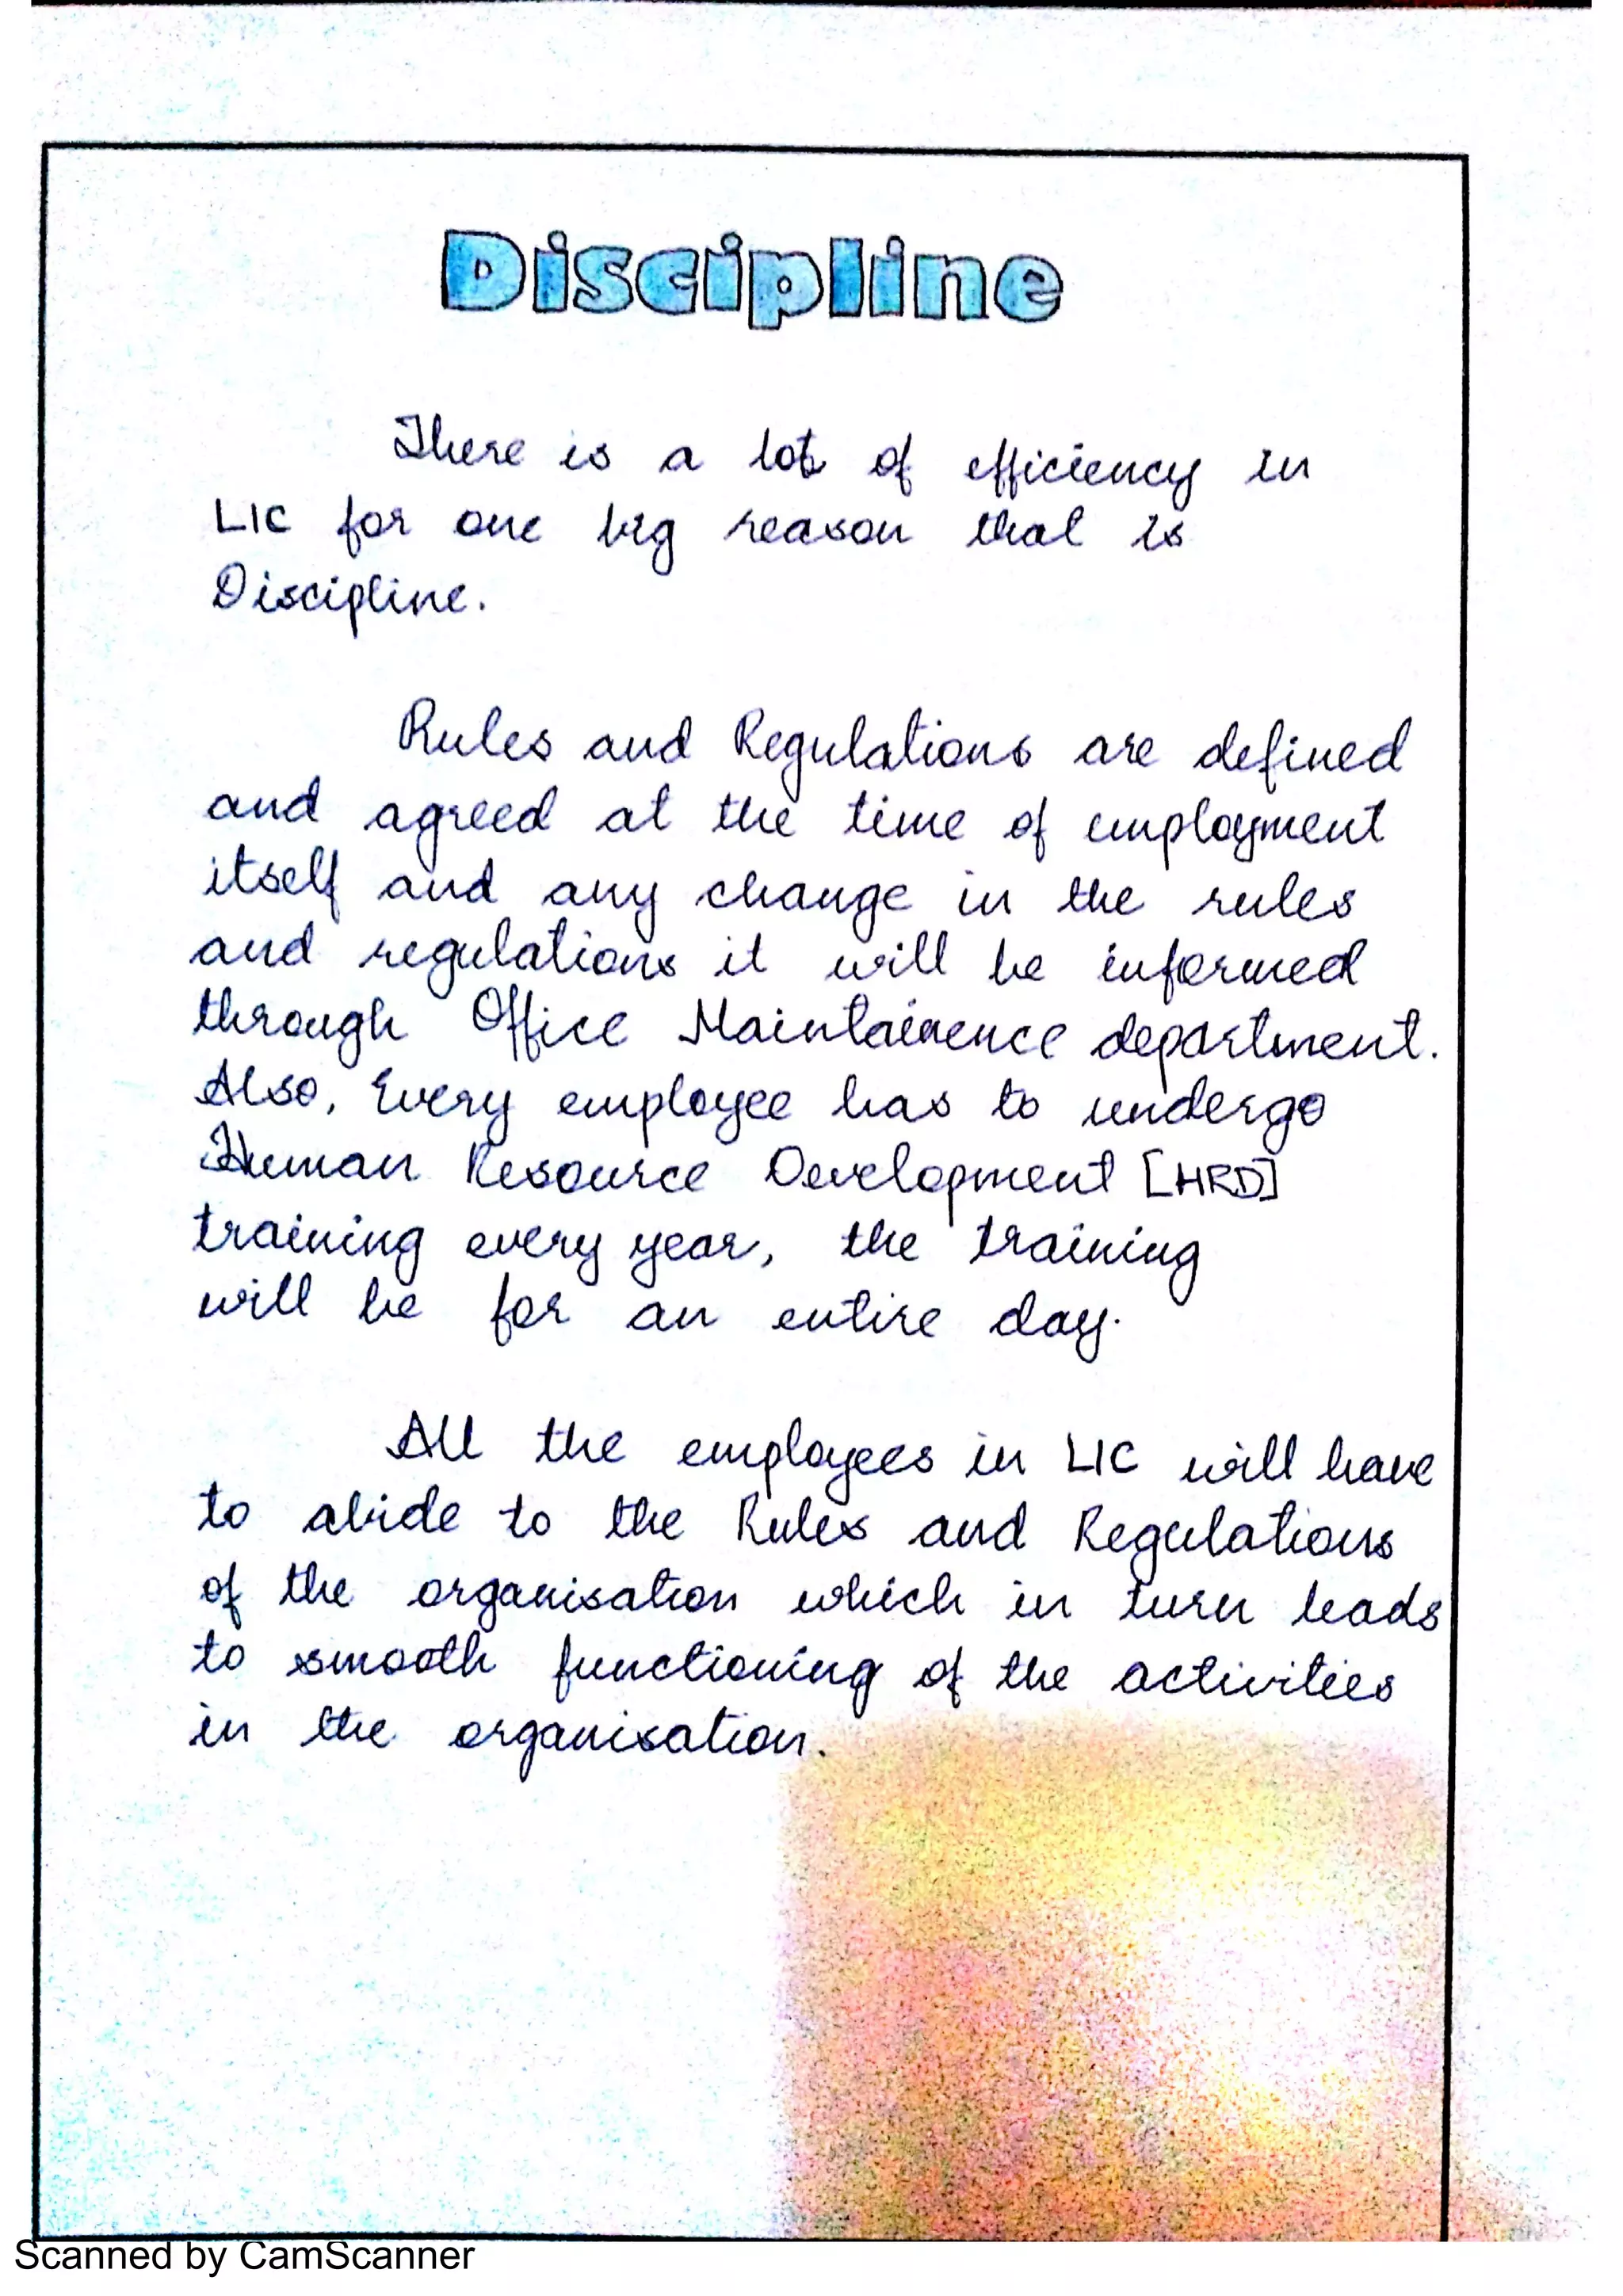 Discipline
There is a lot of efficiency in
LIC for one big reason that is
Discipline.
Rules and Regulations are defined
and agreed at the time of employment
itself and any change in the rules
and regulations it will be informed
through Office Maintainence department.
Also, Every employee has to undergo
Human Resource Development [HRD]
training every year, the training
will be for an entire day.
All the employees in LIC will have
to abide to the Rules and Regulations
of the organisation which in turn leads
to smooth functioning of the activities
in the organisation.
Scanned by CamScanner